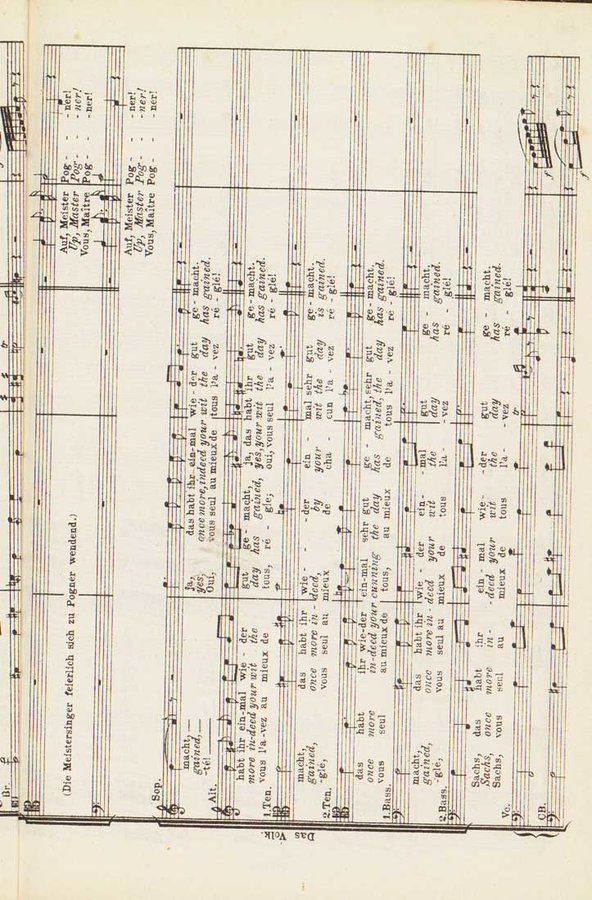 Br.
(Die Meistersinger feierlich sich zu Pogner wendend.)
Auf, Meister Pog - - - ner!
Up, Master Pog - - - ner!
Vous, Maître Pog - - - ner!
Auf, Meister Pog - - - ner!
Up, Master Pog - - - ner!
Vous, Maître Pog - - - ner!
Das Volk.
Sop.
macht, ja, das habt ihr ein-mal wie-der gut ge-macht.
gained, yes, once more, indeed your wit the day has gained.
-té! Oui, vous seul au mieux de tous l'a-vez ré-glé!
Alt.
habt ihr ein-mal wie-der gut ge-macht, ja, das habt ihr gut ge-macht.
more in-deed your wit the day has gained, yes, your wit the day has gained.
vous l'a-vez au mieux de tous, ré-glé; oui, vous seul l'a-vez ré-glé!
1.Ten.
macht, das habt ihr wie - - der ein - mal sehr gut ge-macht.
gained, once more in-deed, by your wit the day is gained.
-glé, vous seul au mieux de cha - cun l'a-vez ré-glé!
2.Ten.
das habt ihr wie-der ein-mal sehr gut ge - macht, sehr gut ge-macht.
once more in-deed your cunning the day has gained, the day has gained.
vous seul au mieux de tous, au mieux de tous, l'a-vez ré-glé!
1.Bass.
macht, das habt ihr wie der ein - mal gut ge macht.
gained, once more in-deed your wit the day has gained.
-glé, vous seul au mieux de tous l'a - vez ré glé!
2.Bass.
Sachs, das habt ihr ein - mal wie - der gut ge - macht.
Sachs, once more in - deed your wit the day has gained.
Sachs, vous seul au mieux de tous l'a - vez ré - glé!
Vc.
CB.
f
f